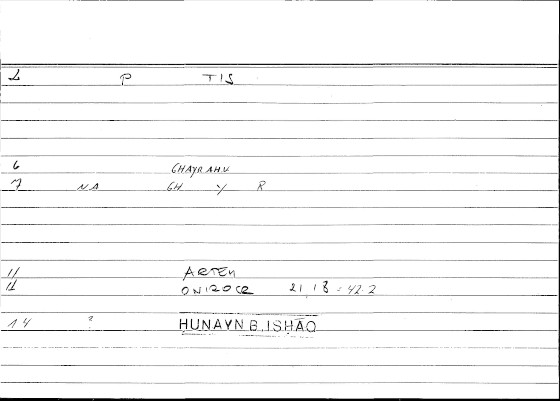 1 P TIS
6 GHAYRAHU
7 NA GH Y R
11 ARTEM
12 ONIROCR 21, 18 = 42.2
14 ? HUNAYN B. ISHĀQ